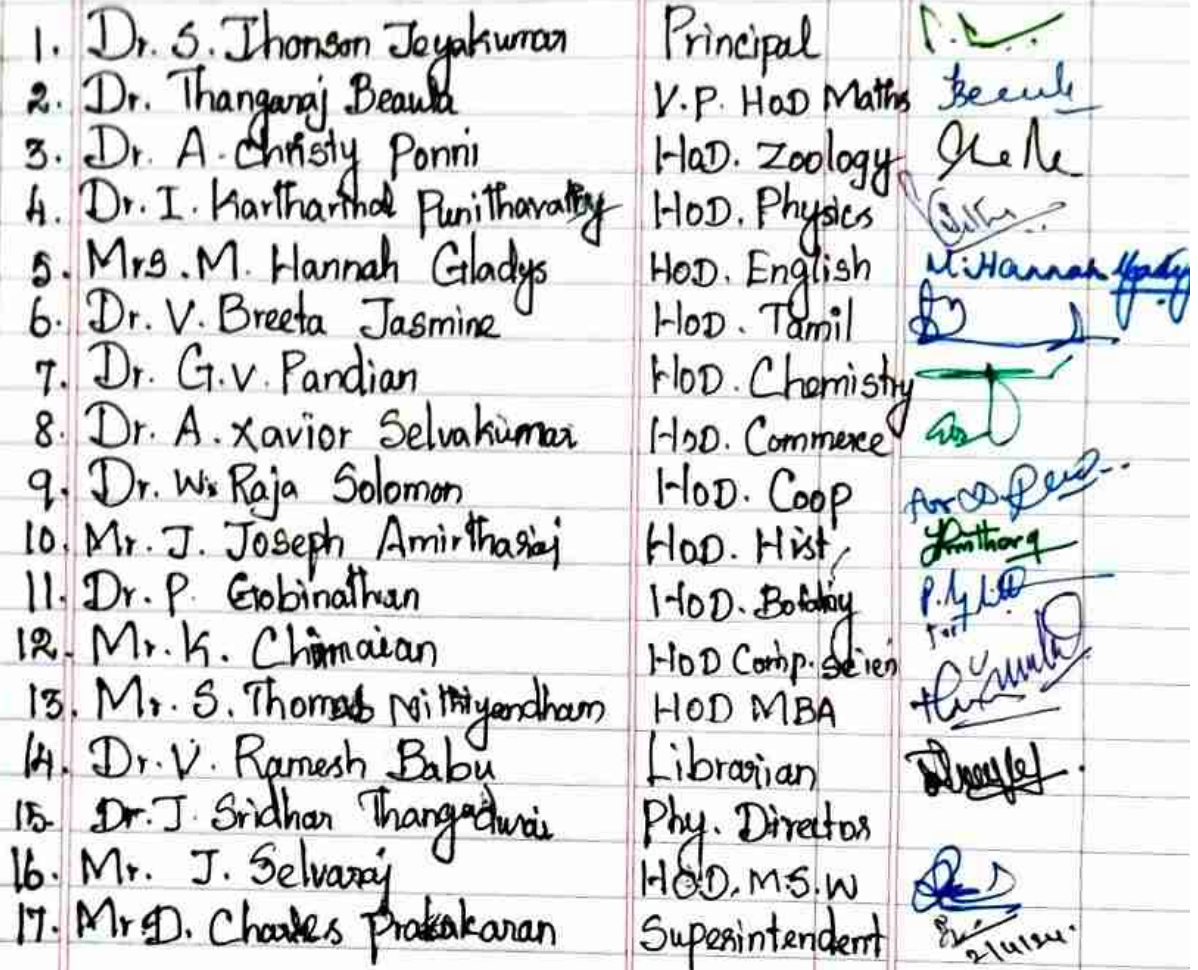 1. Dr. S. Jhonson Jeyakumar Principal
2. Dr. Thangaraj Beaula V.P. HoD Maths Beaula
3. Dr. A. Christy Ponni HoD. Zoology
4. Dr. I. Kartharinal Punithavathy HoD. Physics
5. Mrs. M. Hannah Gladys HoD. English M. Hannah Gladys
6. Dr. V. Breeta Jasmine HoD. Tamil
7. Dr. G.V. Pandian HoD. Chemistry
8. Dr. A. Xavior Selvakumar HoD. Commerce
9. Dr. W. Raja Solomon HoD. Coop for
10. Mr. J. Joseph Amirtharaj HoD. Hist
11. Dr. P. Gobinathan HoD. Botany
12. Mr. K. Chinnaian HoD Comp. Scien for
13. Mr. S. Thomas Nithiyandham HOD MBA
14. Dr. V. Ramesh Babu Librarian
15. Dr. J. Sridhar Thangadurai Phy. Director
16. Mr. J. Selvaraj HOD. M.S.W
17. Mr D. Charles Prabakaran Superintendent
2/4/24.